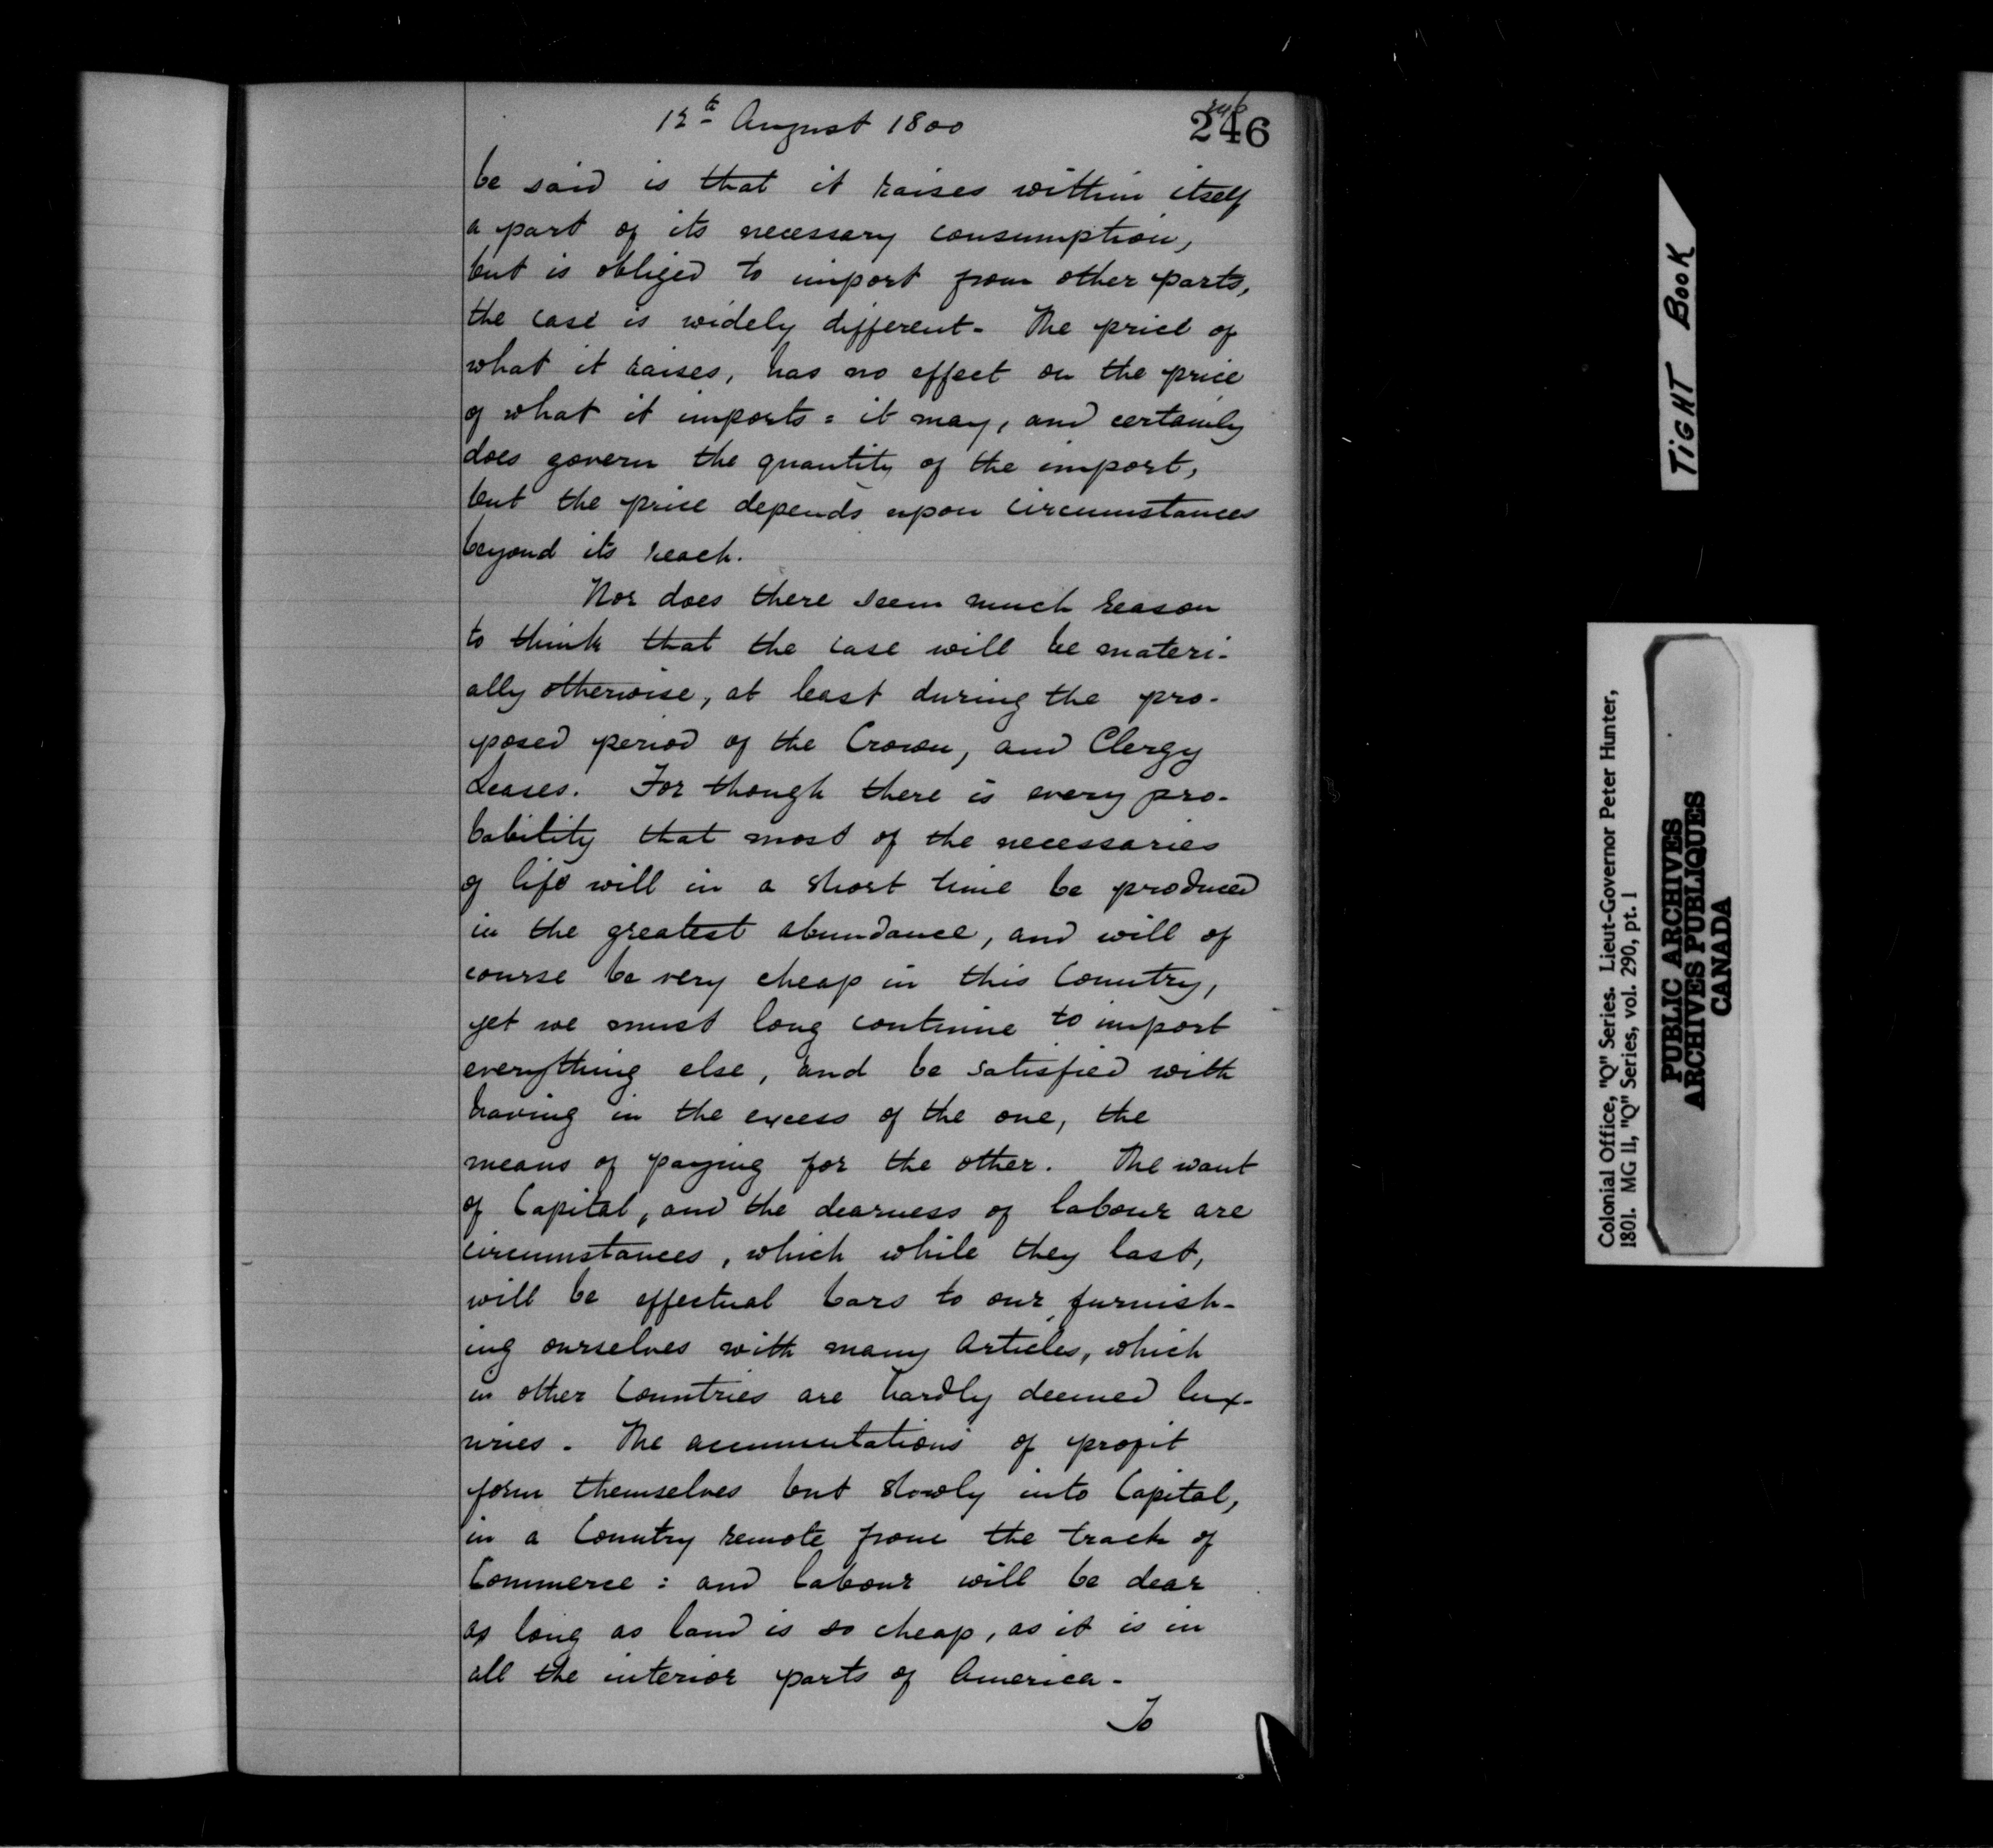 12th August 1800
246
be said is that it raises within itself
a part of its necessary consumption,
but is obliged to import from other parts,
the case is widely different. The price of
what it raises, has no effect on the price
of what it imports = it may, and certainly
does govern the quantity of the import,
but the price depends upon circumstances
beyond its reach.
Nor does there seem much reason
to think that the case will be materi-
ally otherwise, at least during the pro-
posed period of the Crown, and Clergy
Leases. For though there is every pro-
bability that most of the necessaries
of life will in a short time be produced
in the greatest abundance, and will of
course be very cheap in this Country,
yet we must long continue to import
everything else, and be satisfied with
having in the excess of the one, the
means of paying for the other. The want
of Capital, and the dearness of labour are
circumstances, which while they last,
will be effectual bars to our furnish-
ing ourselves with many Articles, which
in other Countries are hardly deemed lux-
uries. The accumulations of profit
form themselves but slowly into Capital,
in a Country remote from the track of
Commerce : and labour will be dear
as long as land is so cheap, as it is in
all the interior parts of America.
To
TIGHT BOOK
Colonial Office, "Q" Series. Lieut-Governor Peter Hunter,
1801. MG 11, "Q" Series, vol. 290, pt. 1
PUBLIC ARCHIVES
ARCHIVES PUBLIQUES
CANADA